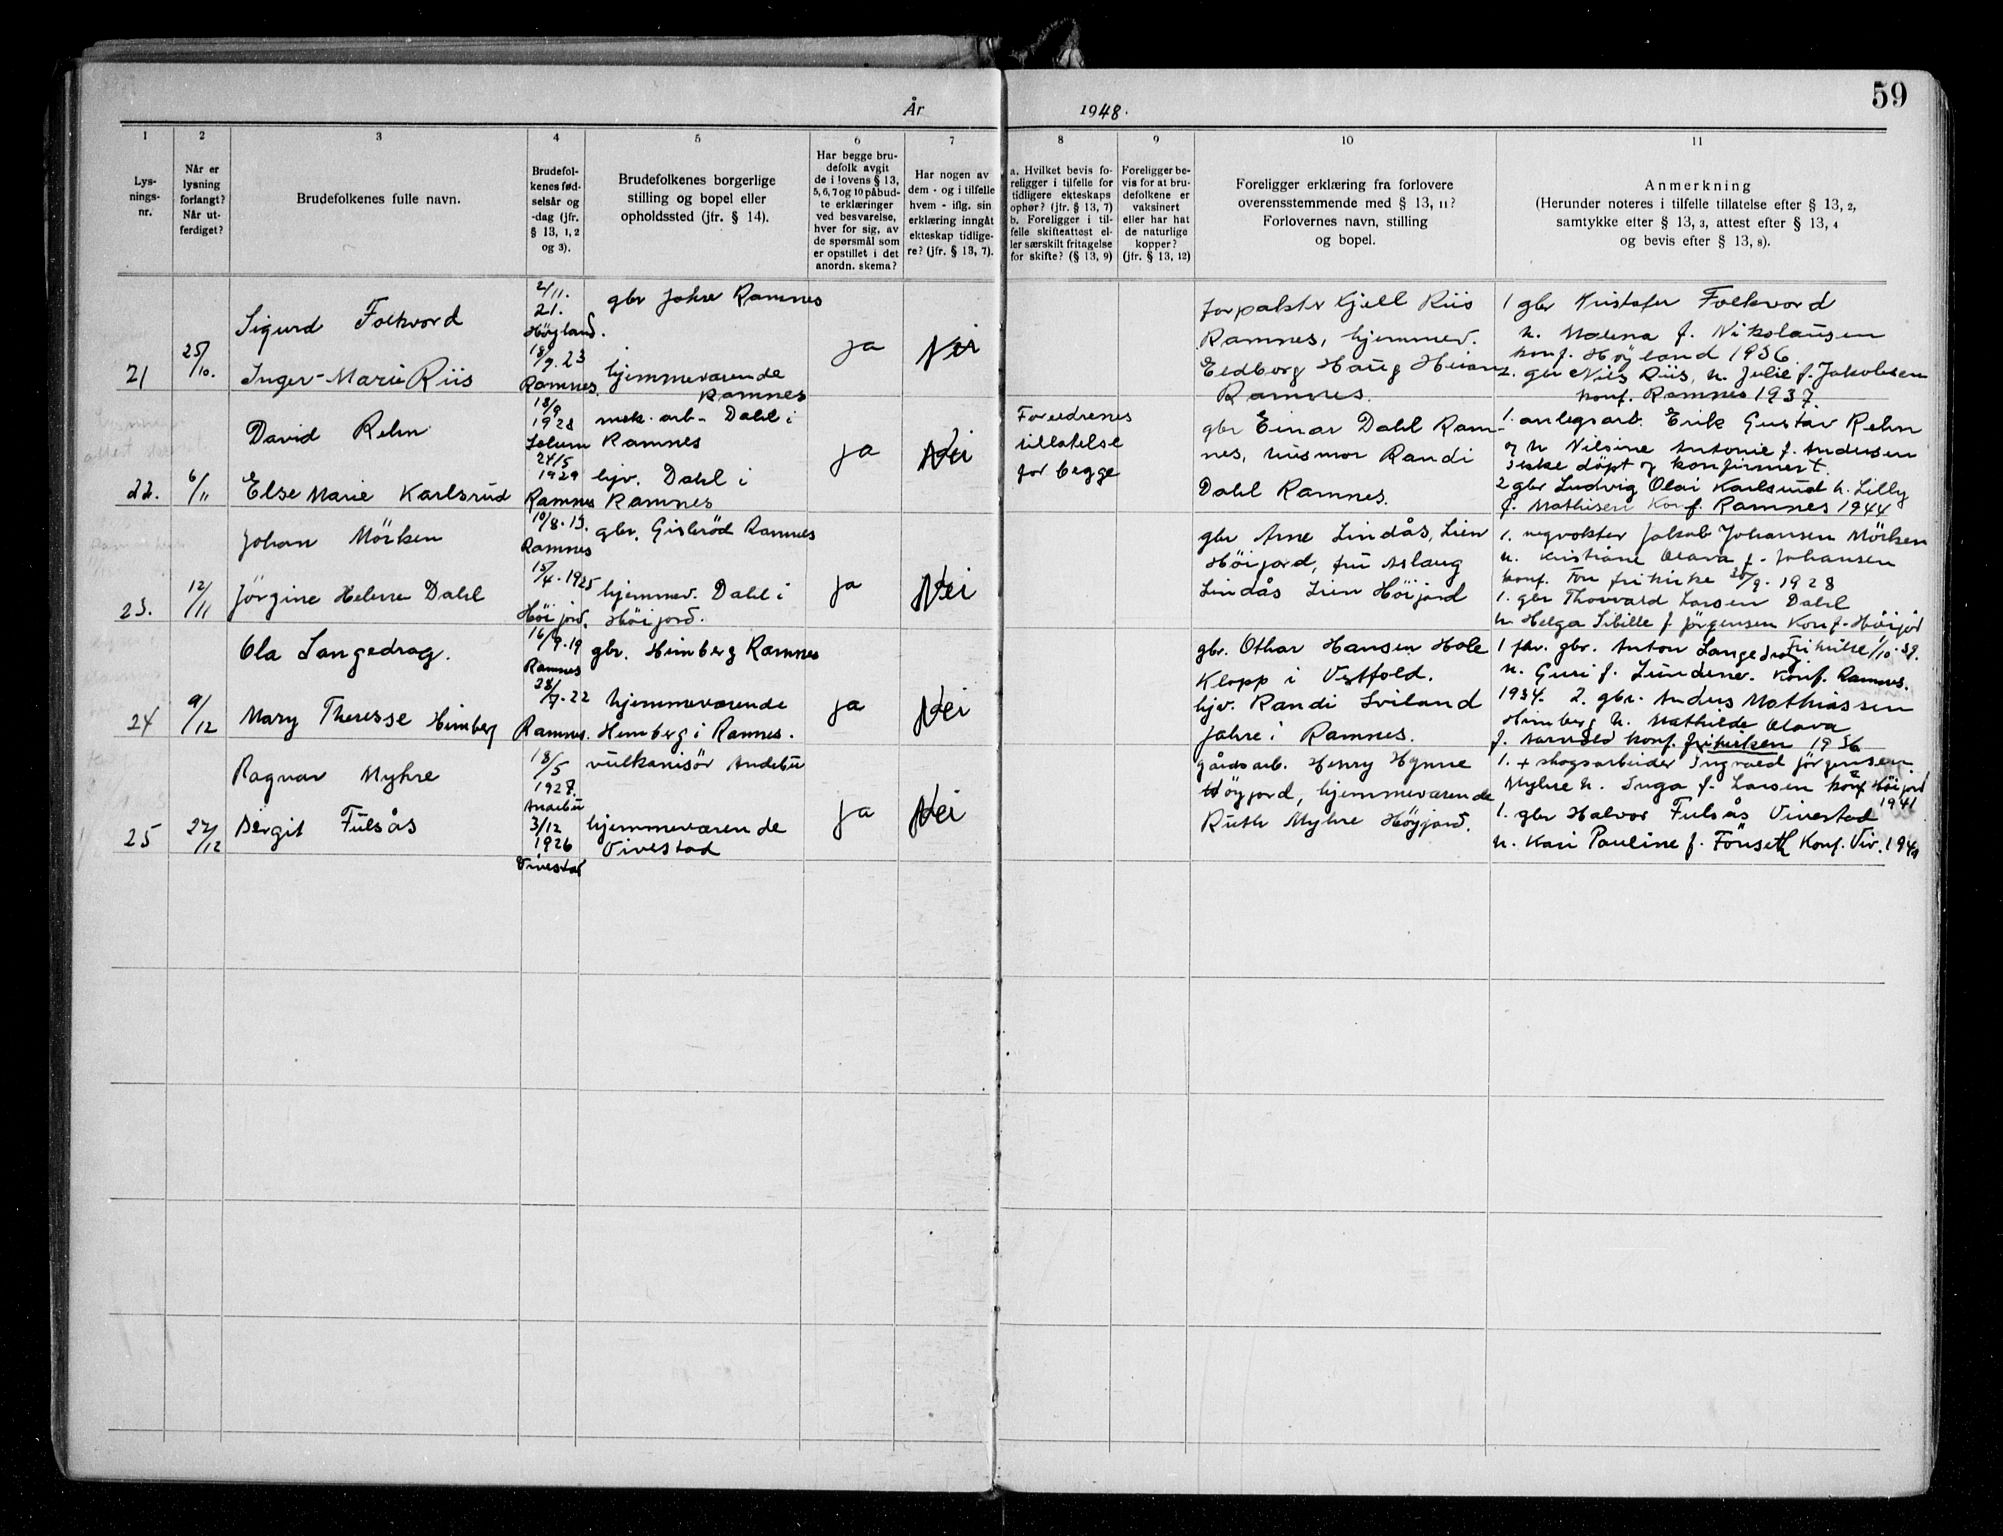 År 1948.
59
1
Lys-
nings-
nr.
2
Når er
lysning
forlangt?
Når ut-
ferdiget?
3
Brudefolkenes fulle navn.
4
Brudefol-
kenes fød-
selsår og
-dag (jfr.
§ 13, 1, 2
og 3).
5
Brudefolkenes borgerlige
stilling og bopel eller
opholdssted (jfr. § 14).
6
Har begge bru-
defolk avgit
de i lovens § 13,
5, 6, 7 og 10 påbud-
te erklæringer
ved besvarelse,
hver for sig, av
de spørsmål som
er opstillet i det
anordn. skema?
7
Har nogen av
dem - og i tilfelle
hvem - iflg. sin
erklæring inngåt
ekteskap tidlige-
re? (jfr. § 13, 7).
8
a. Hvilket bevis fo-
religger i tilfelle for
tidligere ekteskaps
ophør? (jfr. § 13, 7)
b. Foreligger i til-
felle skifteattest el-
ler særskilt fritagelse
for skifte? (§ 13, 9)
9
Foreligger be-
vis for at bru-
defolkene er
vaksinert
eller har hat
de naturlige
kopper?
(jfr. § 13, 12)
10
Foreligger erklæring fra forlovere
overensstemmende med § 13, 11?
Forlovernes navn, stilling
og bopel.
11
Anmerkning
(Herunder noteres i tilfelle tillatelse efter § 13, 2,
samtykke efter § 13, 3, attest efter § 13, 4
og bevis efter § 13, 8).
21
25/10.
Sigurd Folkvord
Inger-Marie Riis
2/11.
21.
Høyland.
18/9.23
Ramnes.
gbr Jahre Ramnes
hjemmeværende
Ramnes
ja
Nei
forpakter Kjell Riis
Ramnes, hjemmev.
Eldborg Haug Heian
Ramnes.
1 gbr Kristofer Folkvord
h. Malena f. Nikolaisen
konf. Høyland 1936.
2. gbr Nils Riis, h. Julie f. Jakobsen
konf. Ramnes 1937.
22.
6/11
David Rehn
Else Marie Karlsrud
18/9
1928
24/5
1929
Ramnes
mek. arb - Dahl i
Ramnes
hjv. Dahl i
Ramnes
ja
Nei
Foreldrenes
tillatelse
for begge
gbr Einar Dahl Ram-
nes, husmor Randi
Dahl Ramnes.
1. anlegsarb. Erik Gustav Rehn
og h Nilsine Antonie f. Andersen
ikke döpt og konfirmert.
2 gbr Ludvig Olai Karlsrud h. Lilly
f. Mathisen Konf. Ramnes 1944
23.
12/11
Johan Mörken
Jörgine Helene Dahl
10/8.13.
Ramnes
15/4.1925
Höijord.
gbr. Gisleröd Ramnes
hjemmev. Dahl i
Höijord.
ja
Nei
gbr Arne Lindås, Lien
Höijord, fru Aslaug
Lindås Lien Höijord
1. vegvokter Jakob Johansen Mörken
h. Kristiane Olava f. Johansen
konf. Fon frikirke 30/9.1928
1. gbr Thorvald Larsen Dahl
h. Helga Sibille f Jörgensen Konf. Höijord
24
9/12
Ola Langedrag.
Mary Theresse Himberg
16/9.19
Ramnes
28/7.22
Ramnes.
gbr. Himberg Ramnes
hjemmeværende
Himberg i Ramnes.
ja
Nei
gbr. Othar Hansen Hole
Klopp i Vestfold.
hjv. Randi Sviland
Jahre i Ramnes.
1 fhv. gbr. Anton Langedrag Frikirke 1/10.39.
h. Guri f. Lundene. Konf. Ramnes.
1934. 2. gbr. Anders Mathiassen
Himberg h. Mathilde Olava
f. Aarvold konf. frikirken 1936
25
22/12
Ragnar Myhre
Bergit Fulsås
18/5
1927.
Andebu
3/12
1926
Vivestad
vulkanisör Andebu
hjemmeværende
Vivestad
ja
Nei
gårdsarb. Henry Hynne
Höyjord, hjemmeværende
Ruth Myhre Höyjord.
1. + skogsarbeider Ingvald Jörgensen
Myhre h. Inga f. Larsen konf Höijord
1941
1. gbr Halvor Fulsås Vivestad
h. Kari Pauline f. Fönseth Konf. Viv. 1941